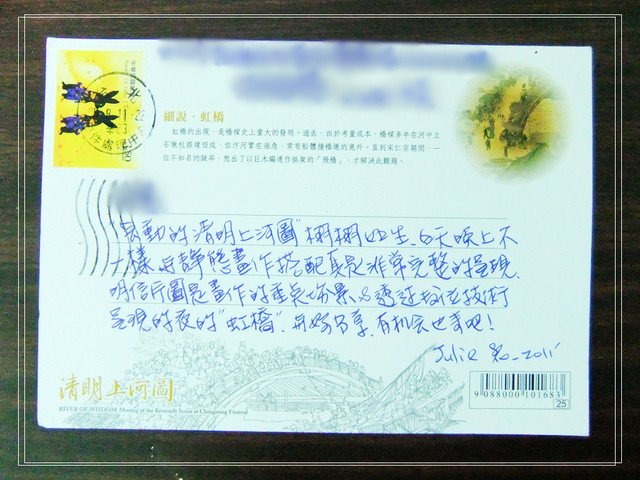 細說．虹橋
虹橋的出現，是橋樑史上重大的發明。過去，由於考量成本，橋樑多半在河中立
石墩柱搭建而成，但汴河實在湍急，常有船體撞橋墩的意外。直到宋仁宗期間，一
位不知名的獄卒，想出了以巨木編連作拱架的「飛橋」，才解決此難題。
"會動的清明上河圖"栩栩如生、白天晚上不
一樣、与靜態畫作搭配真是非常完整的呈現、
明信片圖是畫作的重點佈景、透过技術
呈現的夜的"虹橋"、分享、有机会也来吧！
Julie 2011
清明上河圖
RIVER OF WISDOM-Moving of the Riverside Scene at Chingming Festival
9 088000 101683
25